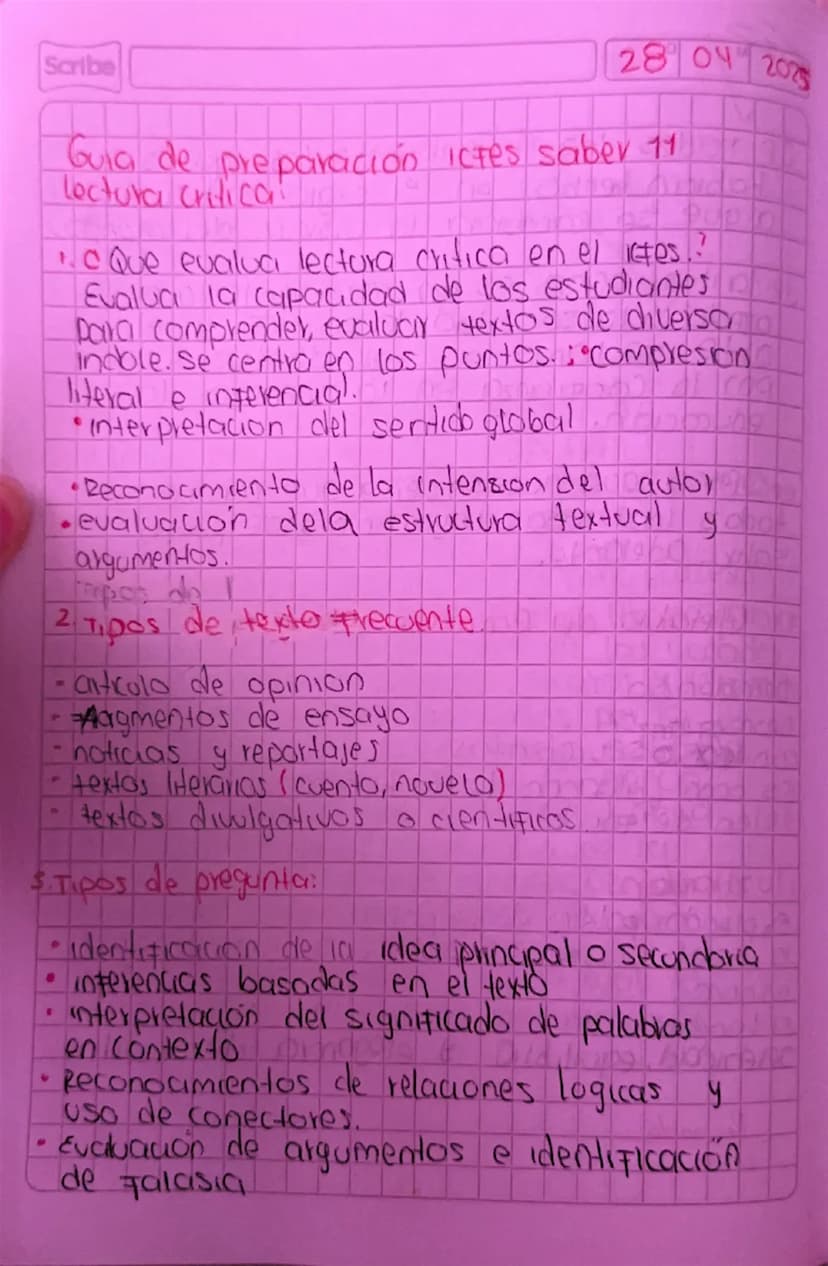 Scribe
28 04 2025
Guia de preparación icfes saber 11
lectura critica:
1. ¿Que evalua lectura critica en el icfes.?
Evalua la capacidad de los estudiantes
para comprender, evaluar textos de diversa
indole. se centra en los puntos.: • compresion
literal e inferencial.
• interpretacion del sentido global
• Reconocimiento de la intension del autor
• evaluación dela estructura textual y
argumentos.
2 Tipos de texto frecuente
- articulo de opinion
- fragmentos de ensayo
- noticias y reportajes
- textos literarios (cuento, novela)
- textos divulgativos o cientificos
3. Tipos de pregunta:
• identificacion de la idea principal o secundaria
• inferencias basadas en el texto
• interpretación del significado de palabras
en contexto
• Reconocimientos de relaciones logicas y
uso de conectores.
• Evaluación de argumentos e identificación
de falasia